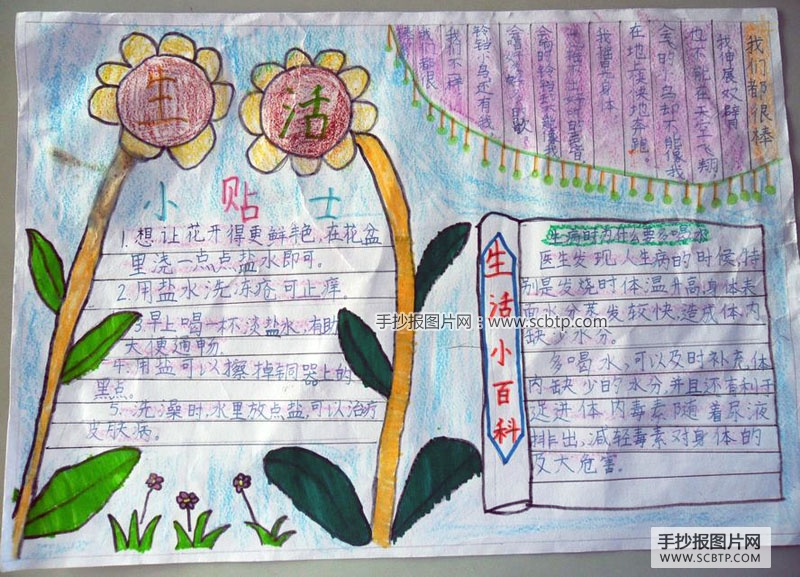 生活
小贴士
1. 想让花开得更鲜艳，在花盆
里浇一点点盐水即可。
2. 用盐水洗冻疮可止痒
3. 早上喝一杯淡盐水，有助
大便通畅
4. 用盐可以擦掉铜器上的
黑点。
5. 洗澡时，水里放点盐，可以治疗
皮肤病。
我们都很棒
我伸展双臂
也不能在天空飞翔
会飞的小鸟却不能像我
在地上快快地奔跑。
我摇晃身体
铃铛小鸟还有我
我们不一样
我们都很
生活小百科
生病时为什么要多喝水
医生发现，人生病的时候，特
别是发烧时体温升高，身体表
面水分蒸发较快，造成体内
缺少水分。
多喝水，可以及时补充体
内缺少的水分，并且还有利于
促进体内毒素随着尿液
排出，减轻毒素对身体的
及大危害。
手抄报图片网：www.scbtp.com
手抄报图片网
WWW.SCBTP.COM